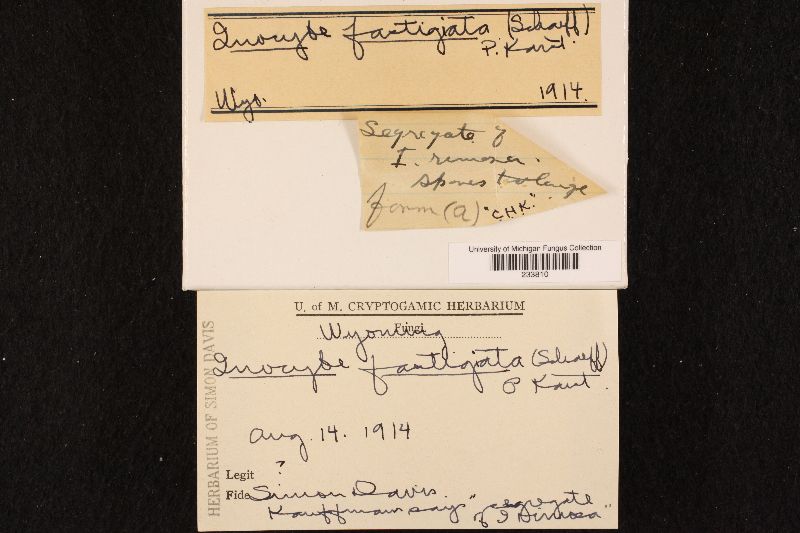 Inocybe fastigiata (Schaeff)
P. Karst.
Wyo. 1914.
Segregate of
I. rimosa.
spores too large
form (a) "C.H.K."
University of Michigan Fungus Collection
233810
U. of M. CRYPTOGAMIC HERBARIUM
Fungi
Wyoming
Inocybe fastigiata (Schaeff)
P Karst.
Aug. 14. 1914
Legit ?
Fide Simon Davis.
Kauffman says "segregate
of I rimosa"
HERBARIUM OF SIMON DAVIS